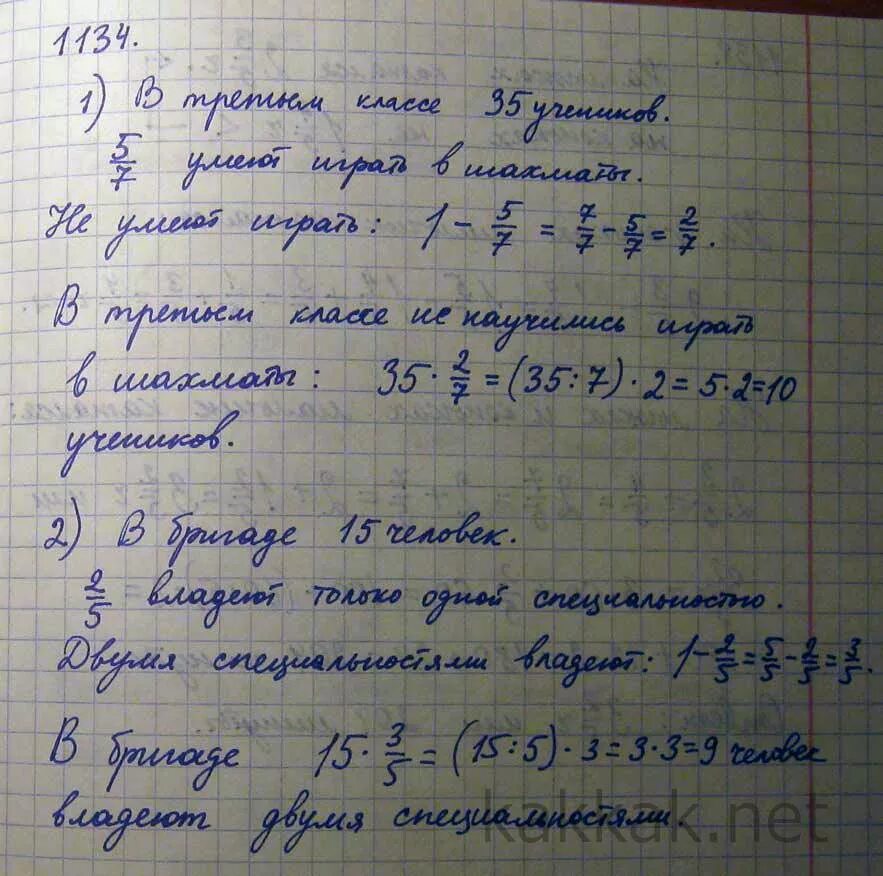 1134.
1) В третьем классе 35 учеников.
5/7 умеют играть в шахматы.
Не умеют играть: 1 - 5/7 = 7/7 - 5/7 = 2/7.
В третьем классе не научились играть
в шахматы: 35 · 2/7 = (35 : 7) · 2 = 5 · 2 = 10
учеников.
2) В бригаде 15 человек.
2/5 владеют только одной специальностью.
Двумя специальностями владеют: 1 - 2/5 = 5/5 - 2/5 = 3/5.
В бригаде 15 · 3/5 = (15 : 5) · 3 = 3 · 3 = 9 человек
владеют двумя специальностями.
kakkak.net